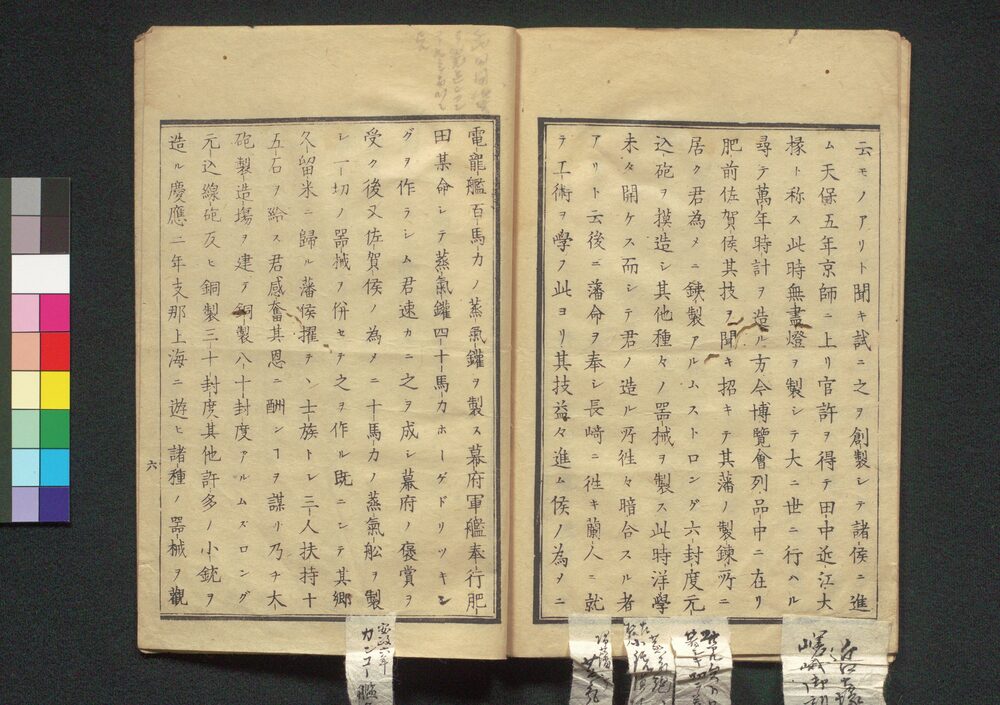 云モノアリト聞キ試ニ之ヲ創製シテ諸侯ニ進
ム天保五年京師ニ上リ官許ヲ得テ田中近江大
掾ト称ス此時無盡燈ヲ製シテ大ニ世ニ行ヘル
尋テ萬年時計ヲ造ル方今博覽會列品中ニ在リ
肥前佐賀侯其技ヲ聞キ招キテ其藩ノ製鍊所ニ
居ク君為メニ銕製アルムストロング六封度元
込砲ヲ摸造シ其他種々ノ器械ヲ製ス此時洋學
未タ開ケス而シテ君ノ造ル所徃々暗合スル者
アリト云後ニ藩命ヲ奉シ長崎ニ徃キ蘭人ニ就
テ工術ヲ學フ此ヨリ其技益々進ム侯ノ為メニ
電龍艦百馬力ノ蒸氣鑵ヲ製ス幕府軍艦奉行肥
田某命シテ蒸氣鑵四十馬力ホーゲドリツキン
グヲ作ラシム君速カニ之ヲ成シ幕府ノ褒賞ヲ
受ク後又佐賀侯ノ為メニ十馬力ノ蒸氣舩ヲ製
シ一切ノ器械ヲ併セテ之ヲ作ル既ニシテ其郷
久留米ニ歸ル藩侯擢テヽ士族トシ三人扶持十
五石ヲ給ス君感奮其恩ニ酬ンヿヲ謀リ乃チ大
砲製造塲ヲ建テ銅製八十封度アルムズロング
元込線砲及ヒ銅製三十封度其他許多ノ小銃ヲ
造ル慶應二年支那上海ニ遊ヒ諸種ノ器械ヲ觀
六
安政六年
カンコー艦